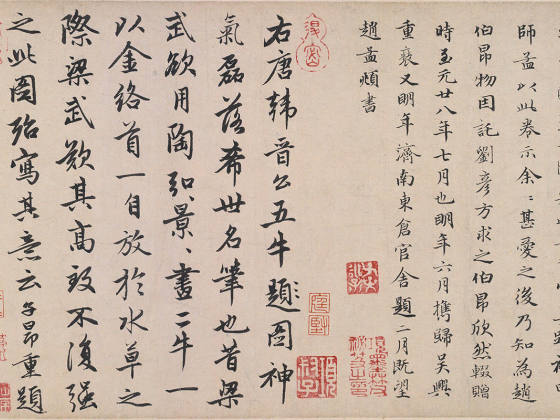 師孟以此卷示余〻甚愛之後乃知為趙
伯昂物因託劉彥方求之伯昂欣然輟贈
時至元廿八年七月也明年六月攜歸吳興
重裝又明年濟南東倉官舍題二月既望
趙孟頫書
右唐韓晉公五牛題圖神
氣磊落希世名筆也昔梁
武欲用陶弘景〻畫二牛一
以金絡首一自放於水草之
際梁武歎其高致不復強
之此圖殆寫其意云子昂重題